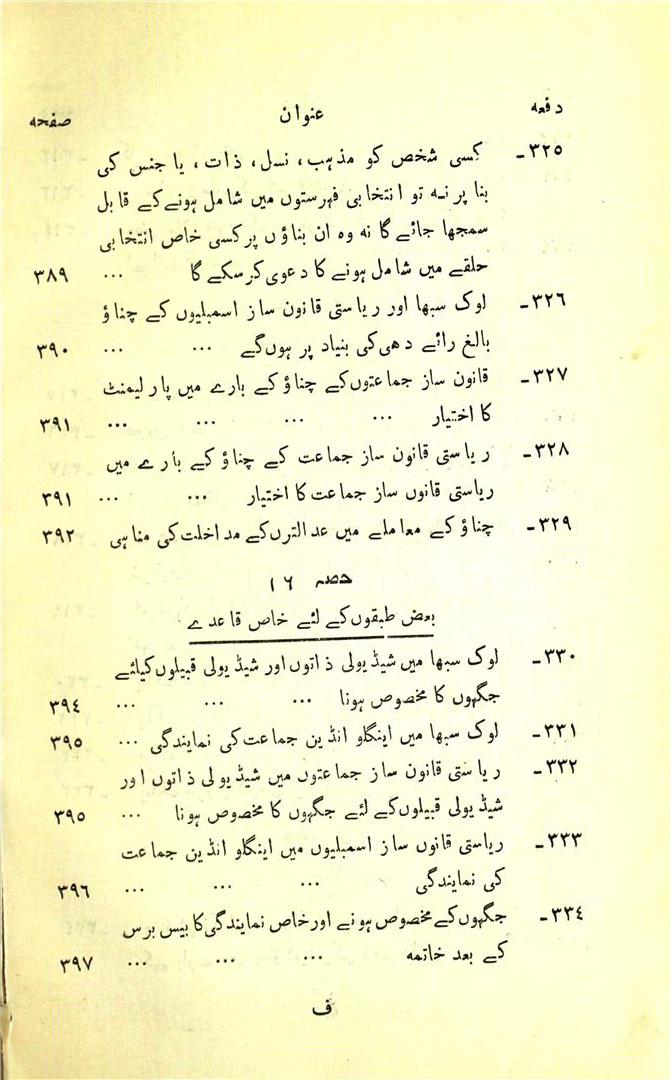 دفعہ عنوان صفحہ
۳۲۵۔ کسی شخص کو مذہب، نسل، ذات، یا جنس کی
بنا پر نہ تو انتخابی فہرستوں میں شامل ہونے کے قابل
سمجھا جائے گا نہ وہ ان بناؤں پر کسی خاص انتخابی
حلقے میں شامل ہونے کا دعوی کر سکے گا ... ۳۸۹
۳۲۶۔ لوک سبھا اور ریاستی قانون ساز اسمبلیوں کے چناؤ
بالغ رائے دھی کی بنیاد پر ہوں گے ... ... ۳۹۰
۳۲۷۔ قانون ساز جماعتوں کے چناؤ کے بارے میں پارلیمنٹ
کا اختیار ... ... ... ... ۳۹۱
۳۲۸۔ ریاستی قانون ساز جماعت کے چناؤ کے بارے میں
ریاستی قانوں ساز جماعت کا اختیار ... ... ۳۹۱
۳۲۹۔ چناؤ کے معاملے میں عدالترں کے مداخلت کی مناہی ۳۹۲
حصہ ۱٦
بعض طبقوں کے لئے خاص قاعدے
۳۳۰۔ لوک سبھا میں شیڈیولی ذاتوں اور شیڈیولی قبیلوں کیلئے
جگہوں کا مخصوص ہونا ... ... ... ۳۹٤
۳۳۱۔ لوک سبھا میں اینگلو انڈین جماعت کی نمایندگی ... ۳۹۵
۳۳۲۔ ریاستی قانون ساز جماعتوں میں شیڈیولی ذاتوں اور
شیڈیولی قبیلوں کے لئے جگہوں کا مخصوص ہونا ... ۳۹۵
۳۳۳۔ ریاستی قانوں ساز اسمبلیوں میں اینگلو انڈین جماعت
کی نمایندگی ... ... ... ۳۹٦
۳۳٤۔ جگہوں کے مخصوص ہونے اور خاص نمایندگی کا بیس برس
کے بعد خاتمہ ... ... ... ۳۹۷
ف